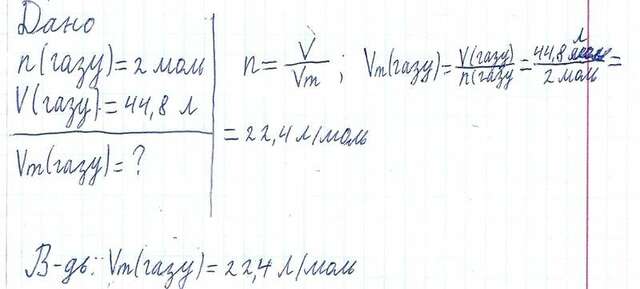 Дано
n(газу)=2 моль
V(газу)=44,8 л
Vm(газу)=?
n=V/Vm; Vm(газу)=V(газу)/n(газу=44,8 л/2 моль=
=22,4 л/моль
В-дь: Vm(газу)=22,4 л/моль